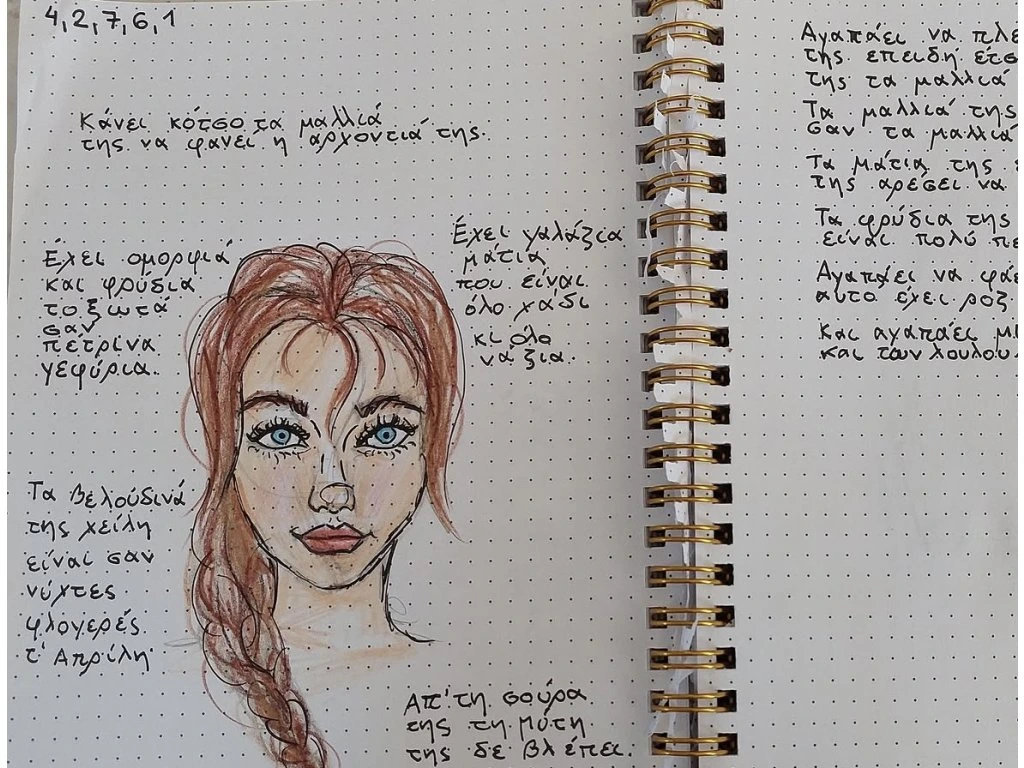 4,2,7,6,1
Κάνει κότσο τα μαλλιά
της να φανει η αρχοντιά της.
Έχει ομορφιά
και φρύδια
τοξωτά
σαν
πέτρινα
γεφύρια.
Έχει γαλάζια
μάτια
που είναι
όλο χάδι
κι όλο
νάζια.
Τα βελούδινά
της χείλη
είναι σαν
νύχτες
φλογερές
τ' Απρίλη
Απ' τη σούρα
της τη μύτη
της δε βλέπει.
Αγαπάει να
της επειδή
της τα μαλλιά
Τα μαλλιά της
σαν τα μαλλιά
Τα μάτια της
της αρέσει να
Τα φρύδια της
είναι πολύ
Αγαπάει να
αυτο έχει ροζ
Και αγαπάει
και των